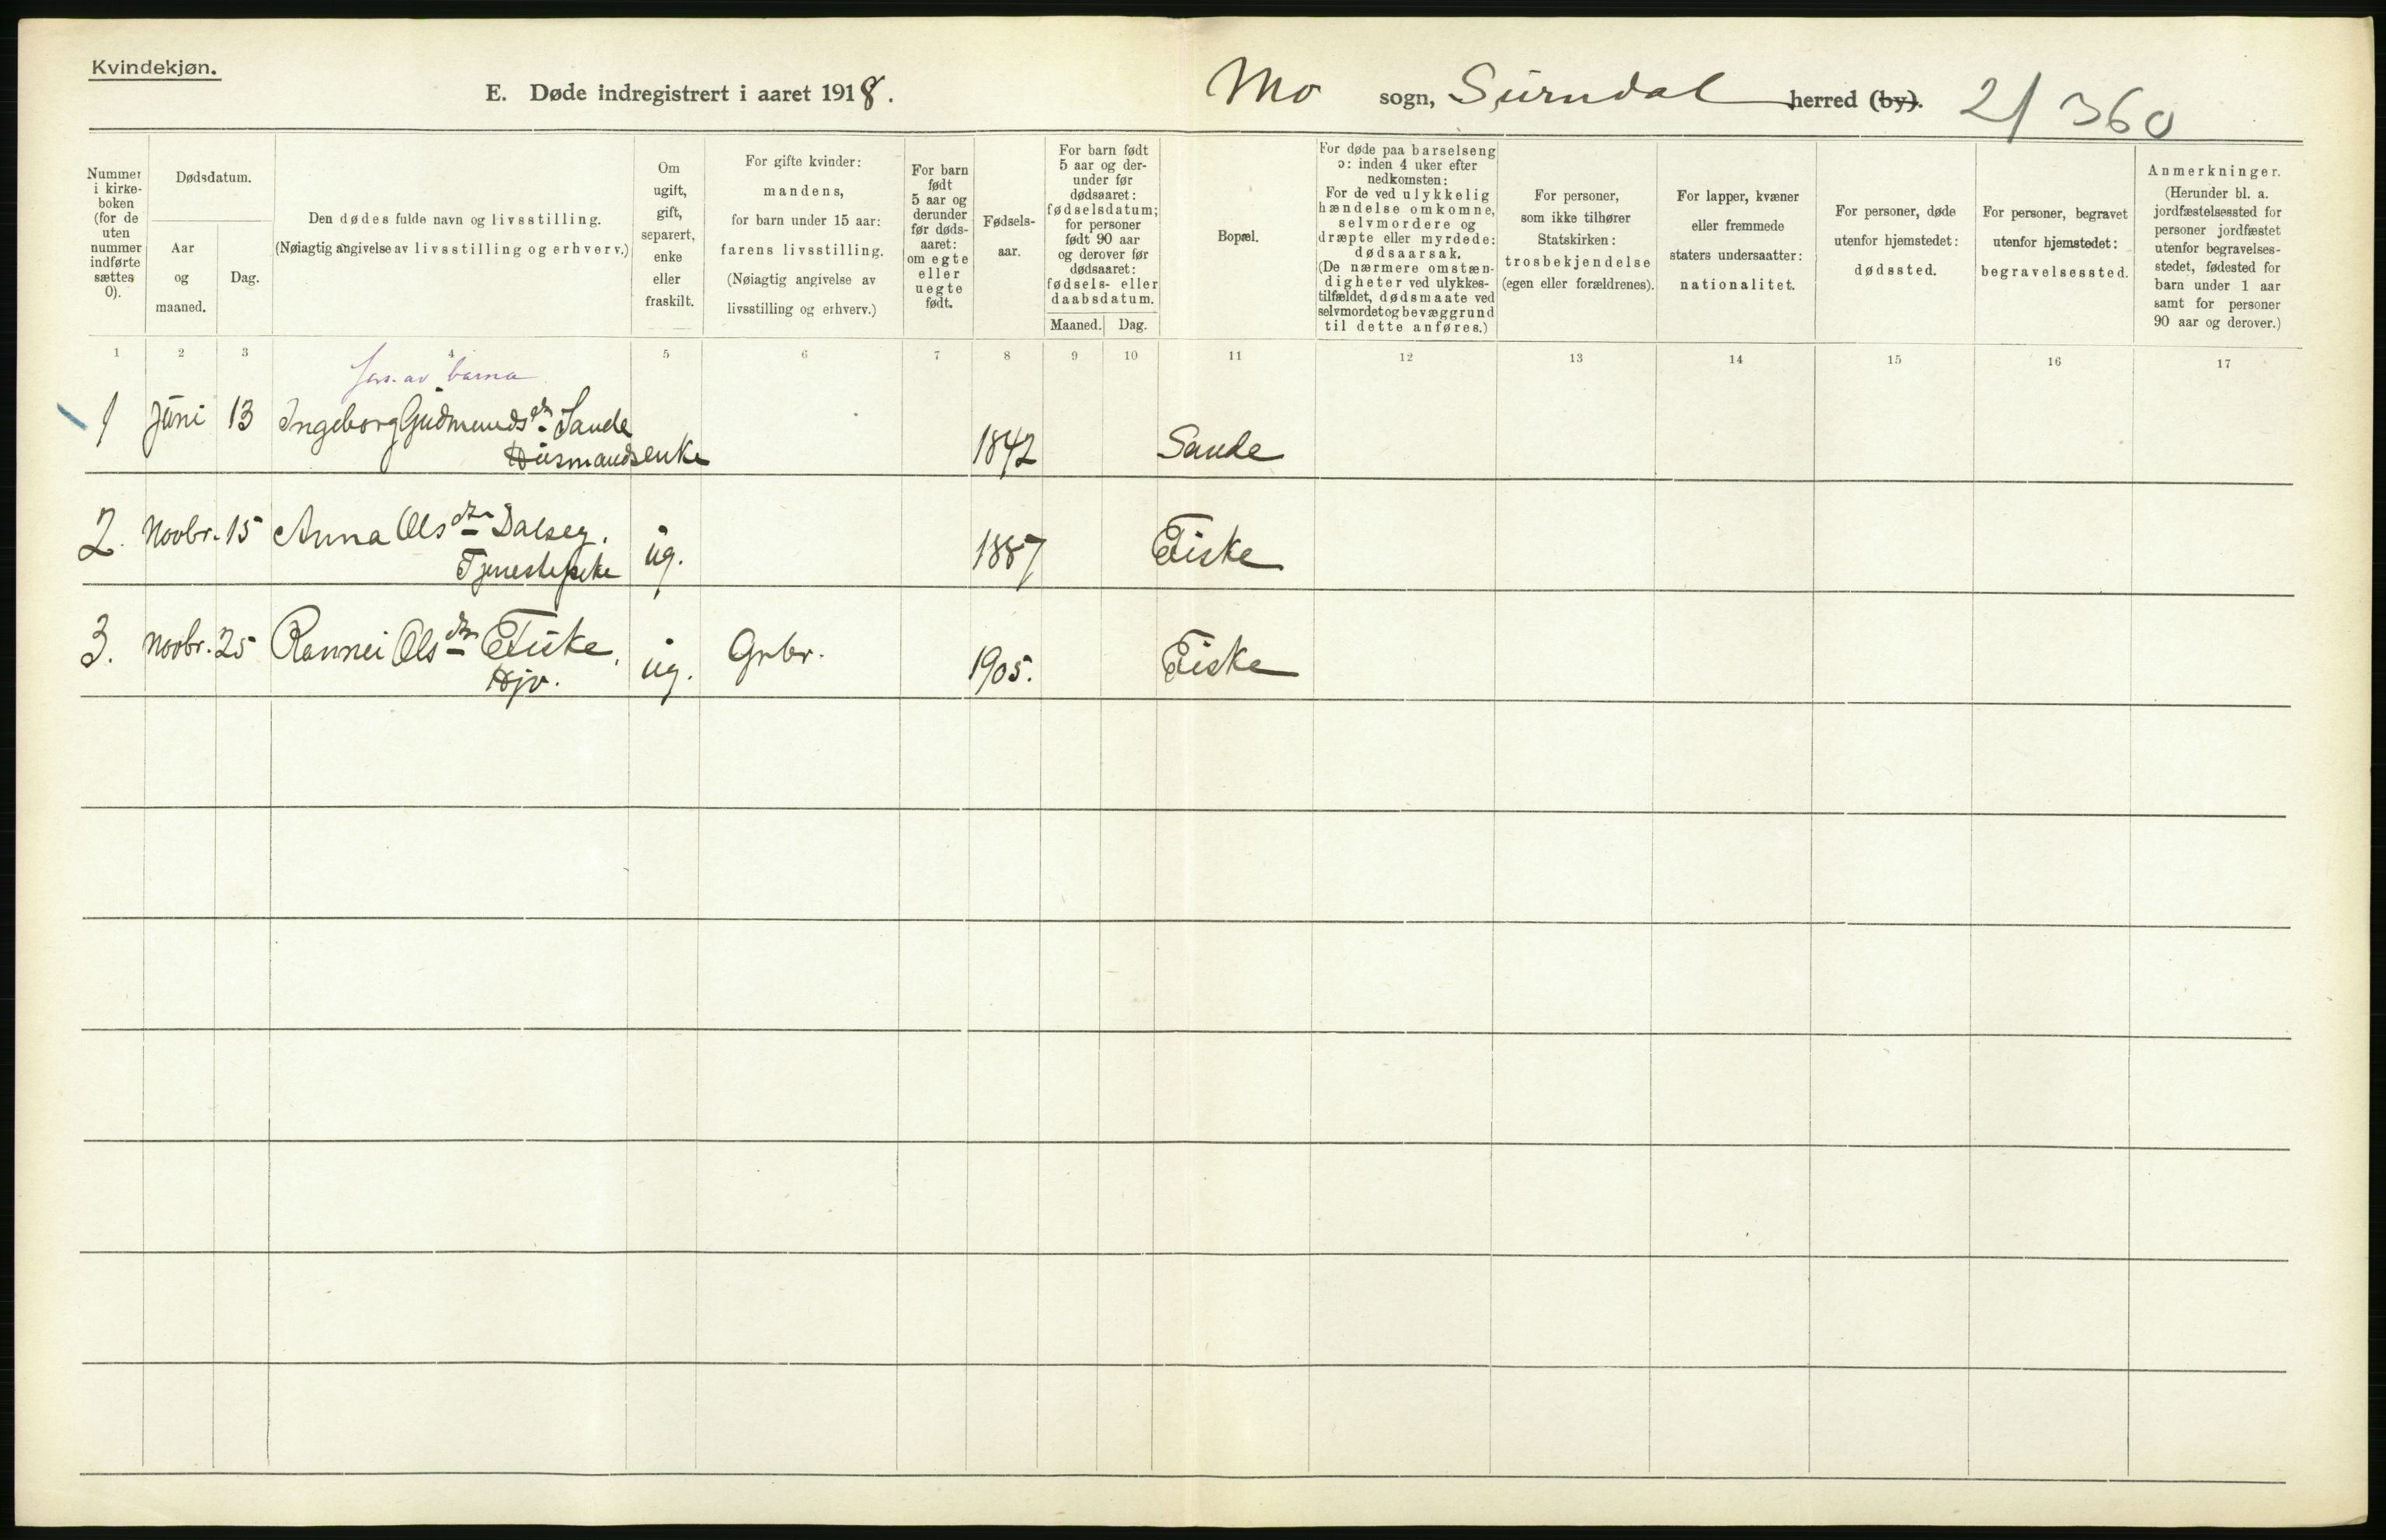 Kvindekjøn.
E. Døde indregistrert i aaret 1918.
Mo sogn, Surndal herred (by). 21 360
Nummer i kirke-boken (for de uten nummer indførte sættes 0).
Dødsdatum.
Aar og maaned.
Dag.
Den dødes fulde navn og livsstilling.
(Nøiagtig angivelse av livsstilling og erhverv.)
Om ugift, gift, separert, enke eller fraskilt.
For gifte kvinder: mandens, for barn under 15 aar: farens livsstilling. (Nøiagtig angivelse av livsstilling og erhverv.)
For barn født 5 aar og derunder før døds-aaret: om egte eller uegte født.
Fødsels-aar.
For barn født 5 aar og der-under før dødsaaret: fødselsdatum; for personer født 90 aar og derover før dødsaaret: fødsels- eller daabsdatum.
Maaned. Dag.
Bopæl.
For døde paa barselseng ɔ: inden 4 uker efter nedkomsten: For de ved ulykkelig hændelse omkomne, selvmordere og dræpte eller myrdede: dødsaarsak. (De nærmere omstæn-digheter ved ulykkes-tilfældet, dødsmaate ved selvmordet og bevæggrund til dette anføres.)
For personer, som ikke tilhører Statskirken: trosbekjendelse (egen eller forældrenes).
For lapper, kvæner eller fremmede staters undersaatter: nationalitet.
For personer, døde utenfor hjemstedet: dødssted.
For personer, begravet utenfor hjemstedet: begravelsessted.
Anmerkninger. (Herunder bl. a. jordfæstelsessted for personer jordfæstet utenfor begravelses-stedet, fødested for barn under 1 aar samt for personer 90 aar og derover.)
1 2 3 4 5 6 7 8 9 10 11 12 13 14 15 16 17
av barna
1 Juni 13 Ingeborg Gudmundsdtr Sande
Husmandsenke 1842 Sande
2. Novbr. 15 Anna Olsdtr Dalseg.
Tjenestepike ug. 1887 Eiske
3. Novbr. 25 Rannei Olsdtr Eiske,
Hjv. ug. Grbr. 1905. Eiske